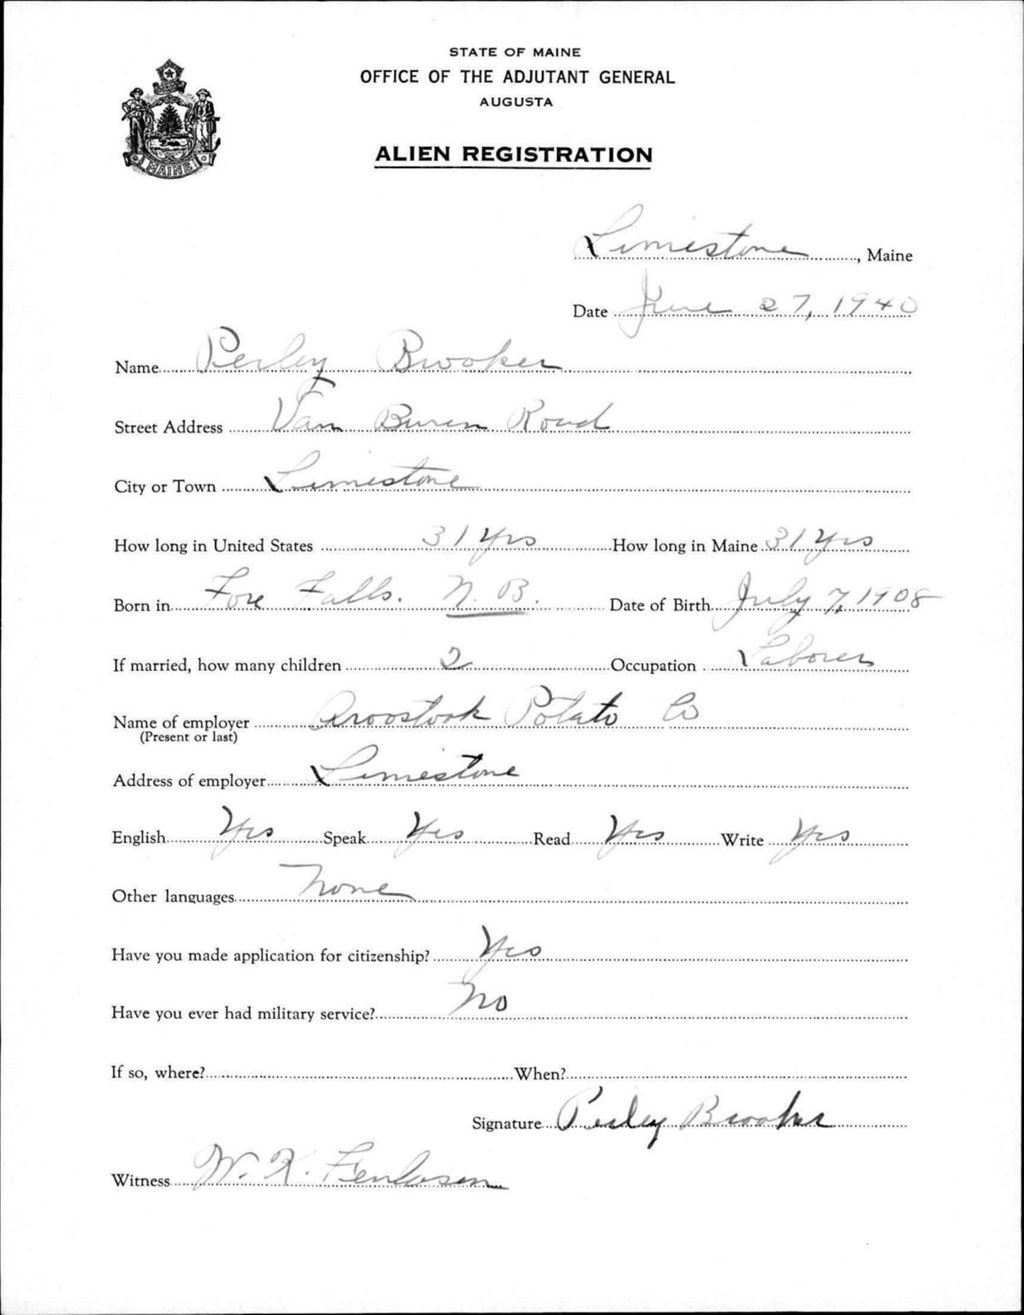 STATE OF MAINE
OFFICE OF THE ADJUTANT GENERAL
AUGUSTA
ALIEN REGISTRATION
MAINE
Limestone, Maine
Date June 27, 1940
Name Perley Brooker
Street Address Van Buren Road
City or Town Limestone
How long in United States 31 Yrs How long in Maine 31 Yrs
Born in Fore Falls. N. B. Date of Birth July 7, 1908
If married, how many children 2 Occupation Laborer
Name of employer Aroostook Potato Co
(Present or last)
Address of employer Limestone
English Yes Speak Yes Read Yes Write Yes
Other languages None
Have you made application for citizenship? Yes
Have you ever had military service? No
If so, where? When?
Signature Perley Brooker
Witness W.